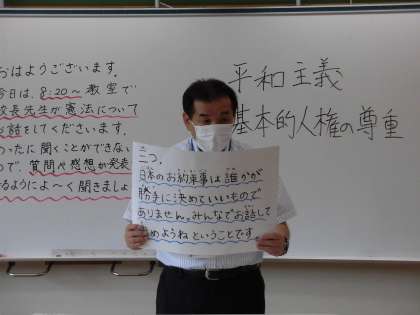 おはようございます。
今日は、8:20～ 教室で
校長先生が憲法について
お話をしてくださいます。
めったに聞くことができない
ので、質問や感想が発表
るようによ～く聞きましょ
平和主義
基本的人権の尊重
二つ。
日本のお約束事は誰かが
勝手に決めていいもので
ありません。みんなでお話して
決めようねということです